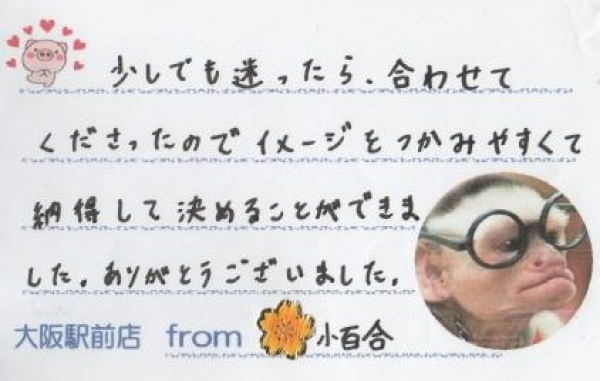 少しでも迷ったら、合わせて
くださったのでイメージをつかみやすくて
納得して決めることができま
した。ありがとうございました。
大阪駅前店 from 小百合